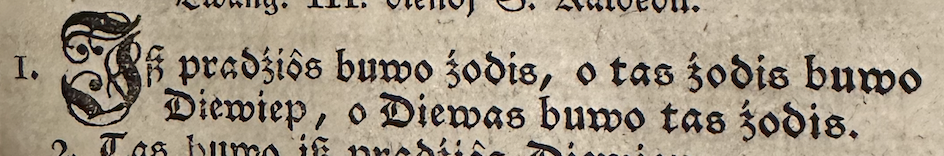 Ewang. III. dienoj S. Kalbedu.
1. Iß pradźiôs buwo źodis, o tas źodis buwo
Diewiep, o Diewas buwo tas źodis.
2. Tas buwo iß pradźiôs Diewiep